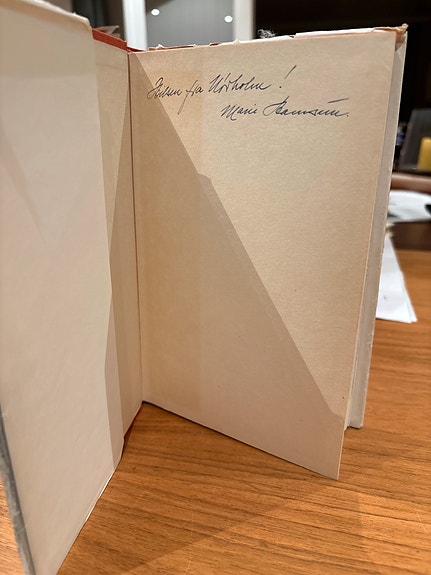 Hilsen fra Nörholm!
Marie Hamsun.